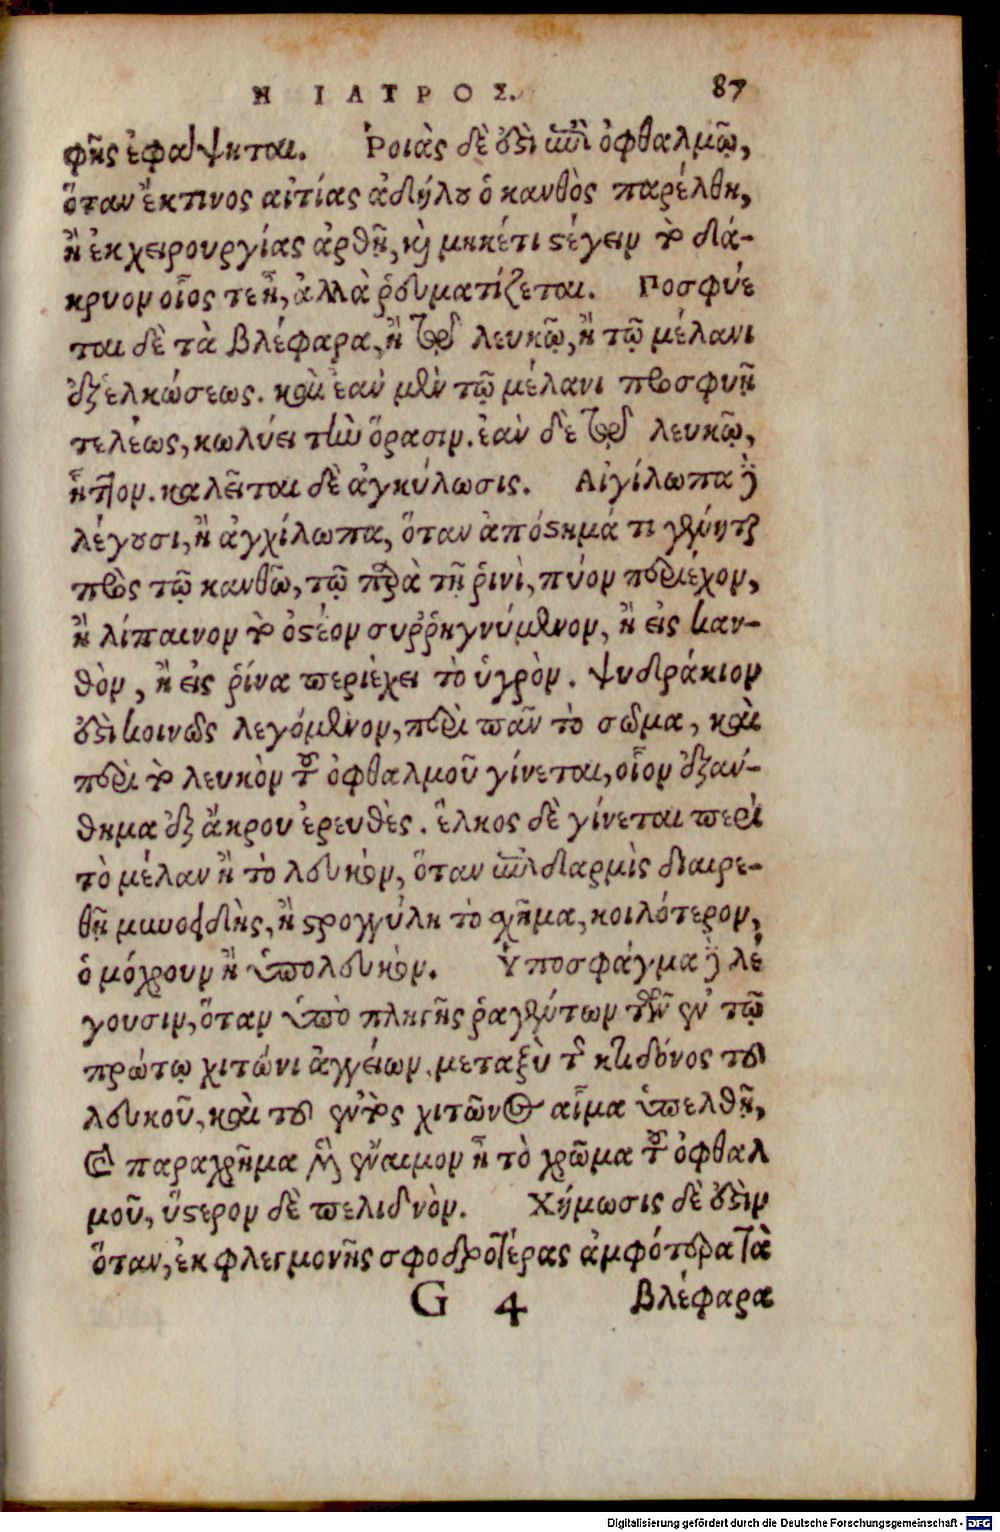 Η ΙΑΤΡΟΣ. 87
φῆς ἐφάψηται. Ῥοιὰς δὲ ὅτι ἐπὶ ὀφθαλμῷ,
ὅταν ἔκ τινος αἰτίας ἀδήλου ὁ κανθὸς παρέλθη,
ἢ ἐκ χειρουργίας ἀρθῇ, καὶ μηκέτι στέγειν τὸ δά-
κρυον οἷος τε ἦ, ἀλλὰ ῥευματίζεται. Προσφύε
ται δὲ τὰ βλέφαρα, ἢ τῷ λευκῷ, ἢ τῷ μέλανι
ἐξ ἑλκώσεως. καὶ ἐὰν μὲν τῷ μέλανι προσφυῇ
τελέως, κωλύει τὴν ὅρασιν. ἐὰν δὲ τῷ λευκῷ,
ἧττον. καλεῖται δὲ ἀγκύλωσις. Αἰγίλωπα δὲ
λέγουσι, ἢ ἀγχίλωπα, ὅταν ἀπόστημά τι γένηται
πρὸς τῷ κανθῷ, τῷ παρὰ τῇ ῥινὶ, πύον περιέχον,
ἢ λίπαινον τὸ ὀστέον συῤῥηγνύμενον, ἢ εἰς καν-
θὸν, ἢ εἰς ῥίνα περιέχει τὸ ὑγρὸν. ψυδράκιον
ὅτι κοινῶς λεγόμενον, περὶ πᾶν τὸ σῶμα, καὶ
περὶ τὸ λευκὸν τοῦ ὀφθαλμοῦ γίνεται, οἷον ἐξάν-
θημα ἐξ ἄκρου ἐρευθὲς. ἕλκος δὲ γίνεται περὶ
τὸ μέλαν ἢ τὸ λευκὸν, ὅταν ἐπιδιαρμὶς διαιρε-
θῇ, ἢ στρογγύλη τὸ σχῆμα, κοιλότερον,
ὁμόχρουν ἢ ὑπόλευκον. Ὑποσφάγμα δὲ λέ
γουσιν, ὅταν ὑπὸ πληγῆς ῥαγέντων τῶν ἐν τῷ
πρώτῳ χιτῶνι ἀγγείων, μεταξὺ τῆς κτηδόνος τοῦ
λευκοῦ, καὶ τοῦ ἐντὸς χιτῶνος αἷμα ὑπελθῇ,
καὶ παραχρῆμα μὲν ἔναιμον ᾖ τὸ χρῶμα τοῦ ὀφθαλ
μοῦ, ὕστερον δὲ πελιδνὸν. Χήμωσις δὲ ὅτιν
ὅταν, ἐκ φλεγμονῆς σφοδροτέρας ἀμφότερα τὰ
G 4 βλέφαρα
Digitalisierung gefördert durch die Deutsche Forschungsgemeinschaft - DFG